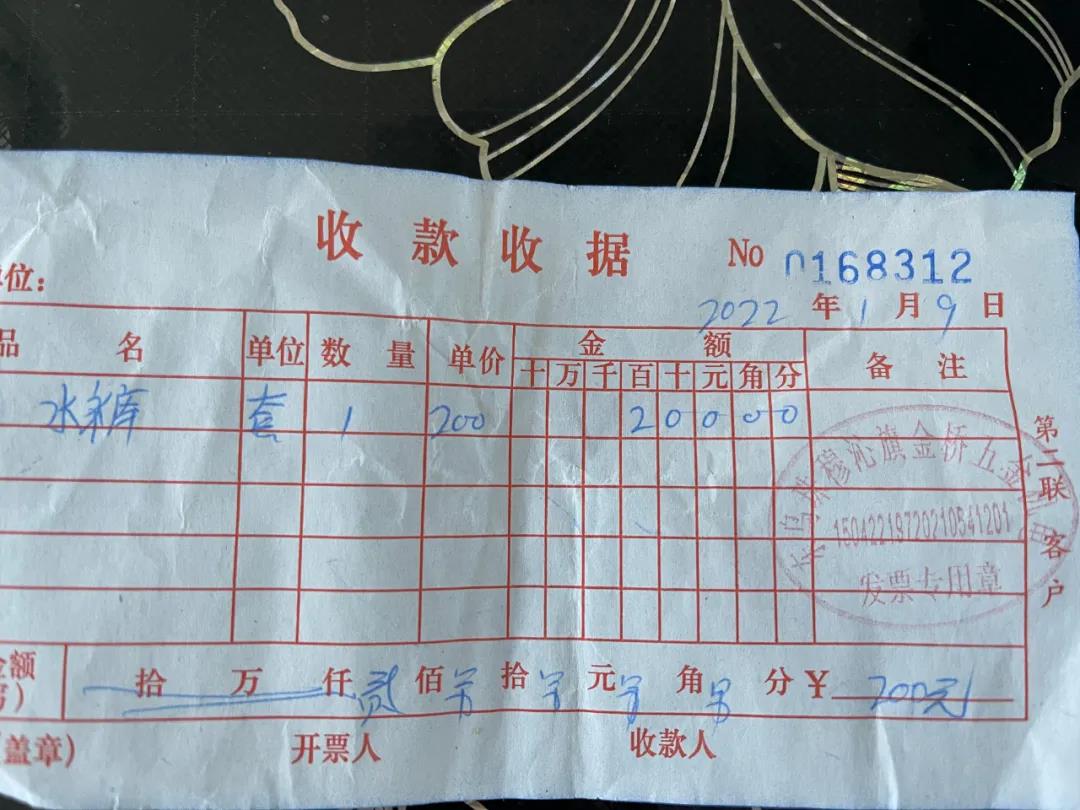 收款收据 No 0168312
单位: 2022年1月9日
品名 单位 数量 单价 金额 备注
十万千百十元角分
水 库 套 1 200 20000
第二联 客户
东乌珠穆沁旗金桥五金
15042219720210541201
发票专用章
金额 拾万仟贰佰 拾 元 角 分 ¥200元
(盖章) 开票人 收款人